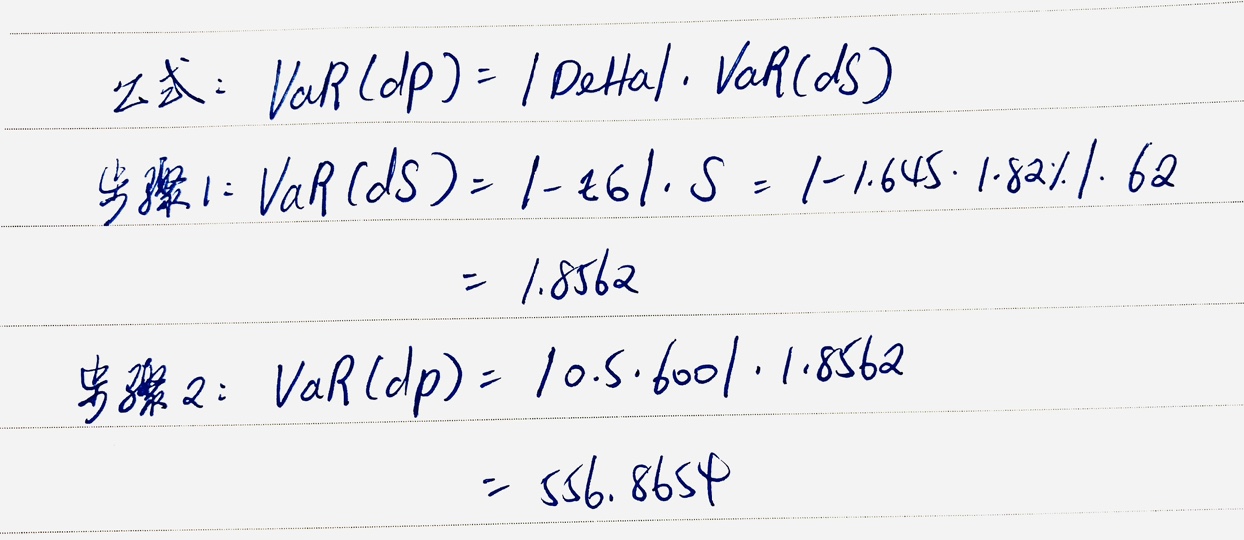 公式: VaR(dp) = |Delta|·VaR(dS)
步骤1: VaR(dS) = |-zσ|·S = |-1.645·1.82%|·62
= 1.8562
步骤2: VaR(dp) = |0.5·600|·1.8562
= 556.8654